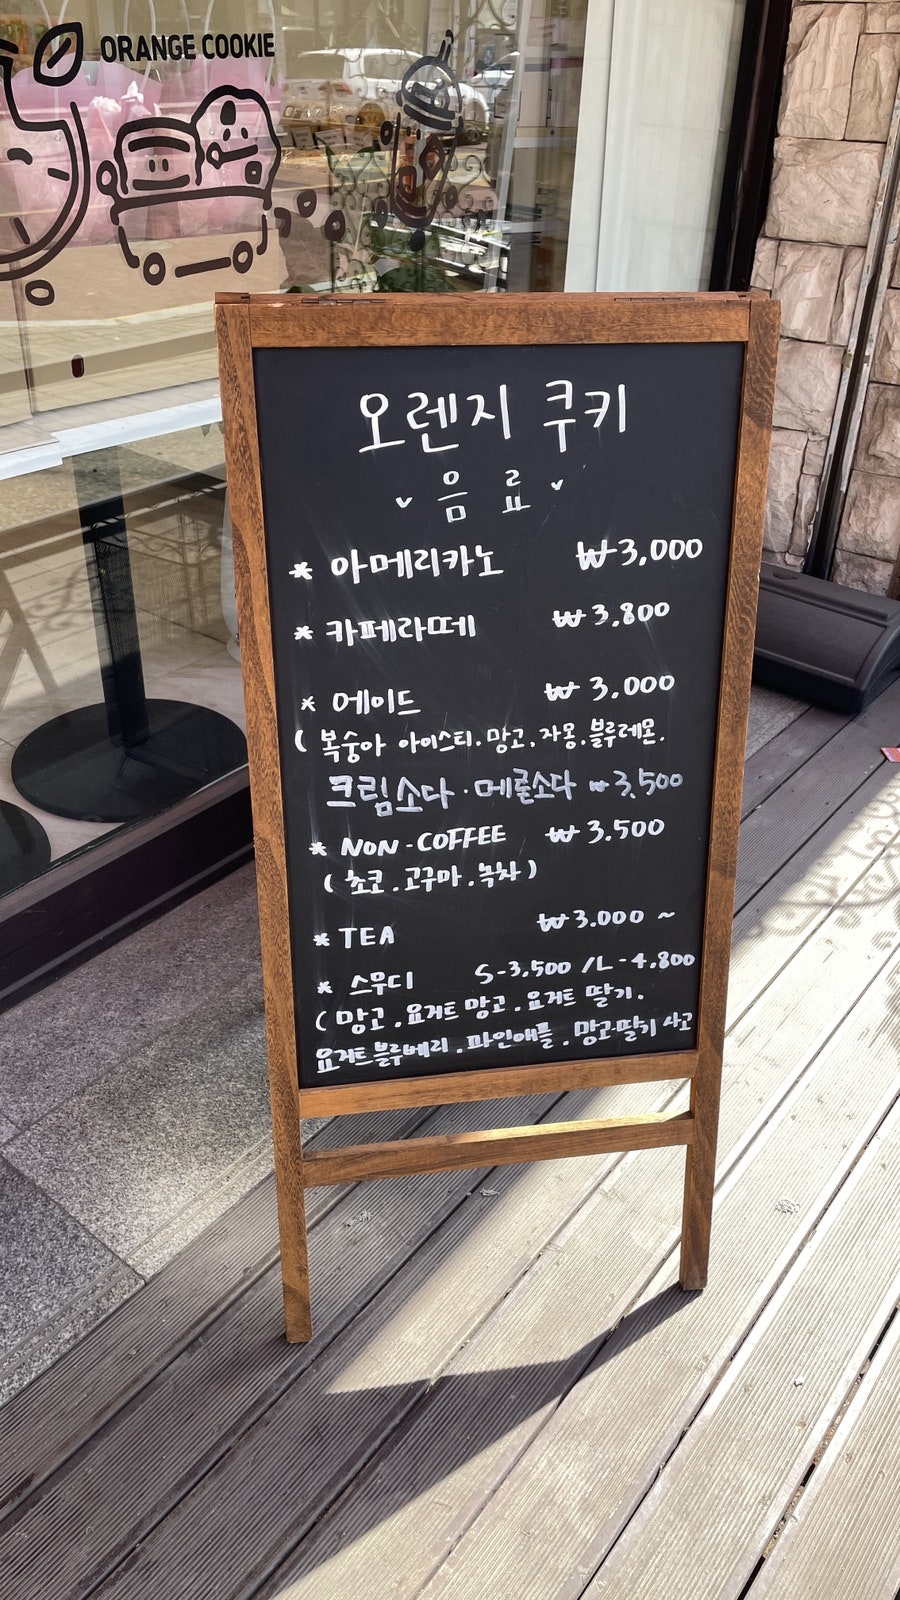 ORANGE COOKIE
오렌지 쿠키
음료
* 아메리카노 ₩3,000
* 카페라떼 ₩3,800
* 에이드 ₩3,000
( 복숭아 아이스티. 망고. 자몽. 블루레몬.
크림소다 · 메론소다 ₩3,500
* NON-COFFEE ₩3.500
( 초코. 고구마. 녹차 )
* TEA ₩3.000 ~
* 스무디 S-3,500 / L-4,800
( 망고. 요거트 망고. 요거트 딸기.
요거트블루베리. 파인애플. 망고딸기 사고